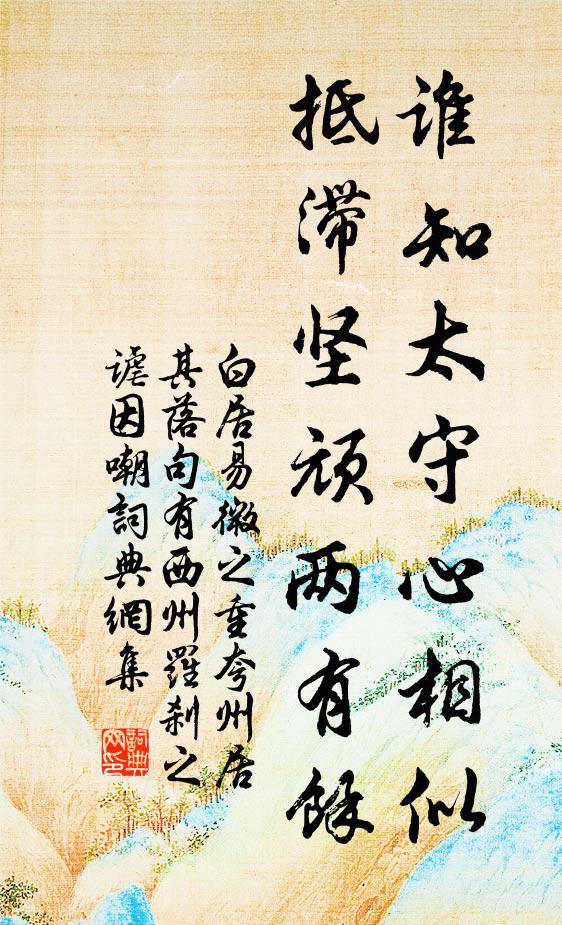 谁知太守心相似
抵滞坚顽两有馀
白居易微之重夸州居
其落句有西州羅刹之
謔因嘲詞典網集
詞典網印